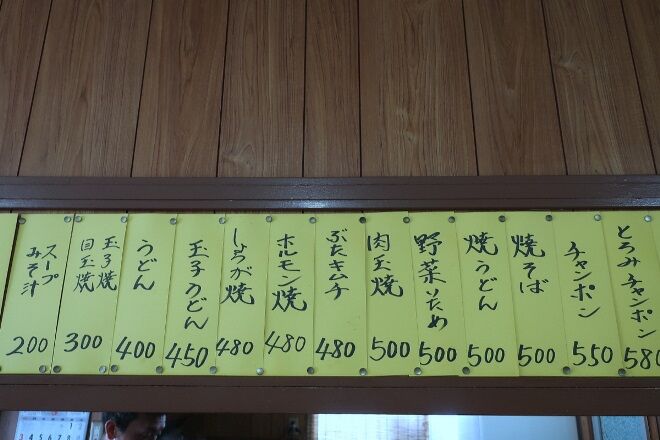 とろみチャンポン
580
チャンポン
550
焼そば
500
焼うどん
500
野菜いため
500
肉玉焼
500
ぶたキムチ
480
ホルモン焼
480
しょうが焼
480
玉子うどん
450
うどん
400
玉子焼
目玉焼
300
スープ
みそ汁
200